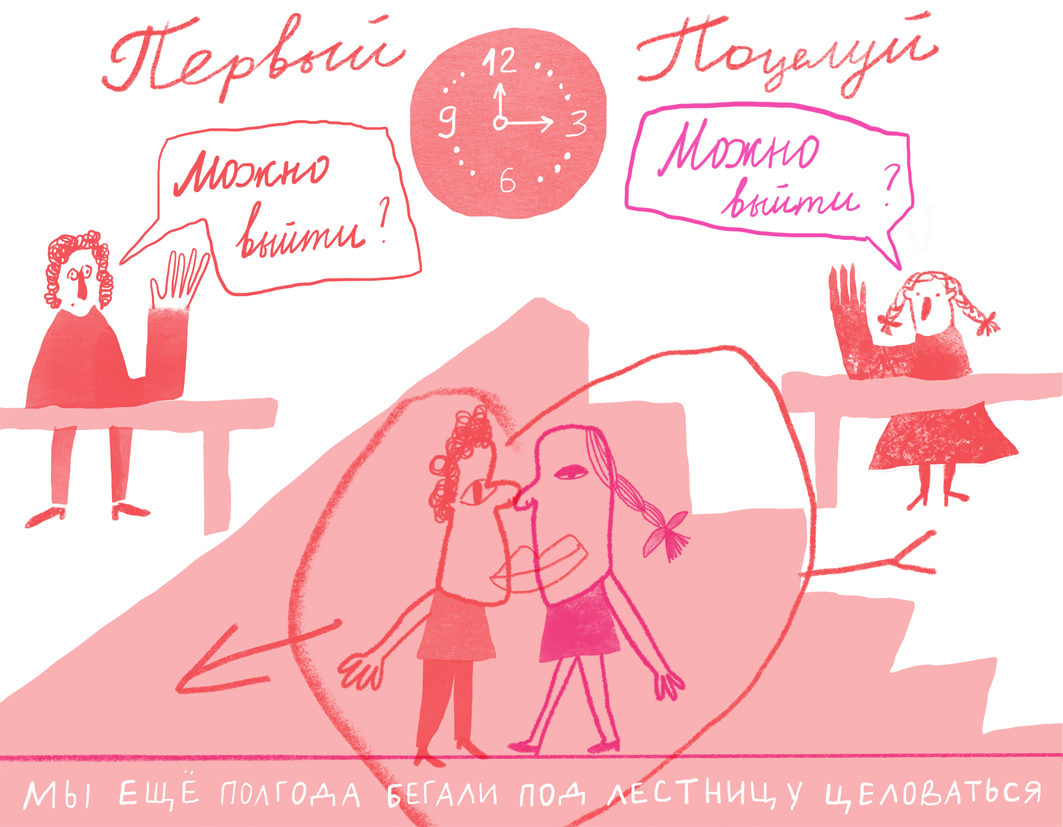 Первый Поцелуй
12
9 3
6
Можно
выйти?
Можно
выйти?
МЫ ЕЩЁ ПОЛГОДА БЕГАЛИ ПОД ЛЕСТНИЦУ ЦЕЛОВАТЬСЯ